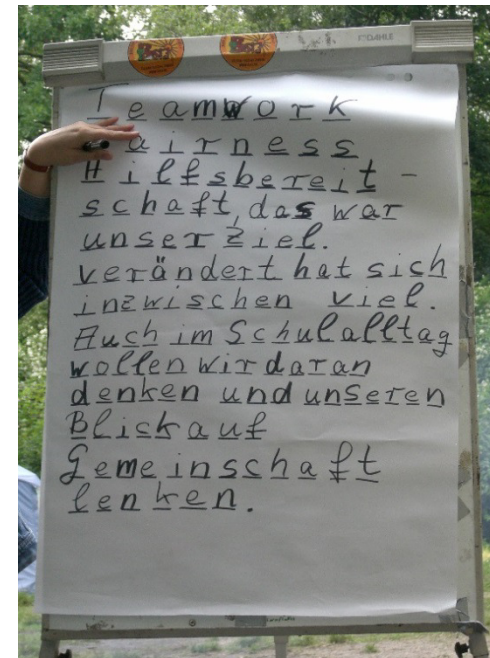 Teamwork
airness
Hilfsbereit-
schaft, das war
unser Ziel.
verändert hat sich
inzwischen viel.
Auch im Schulalltag
wollen wir daran
denken und unseren
Blick auf
Gemeinschaft
lenken.